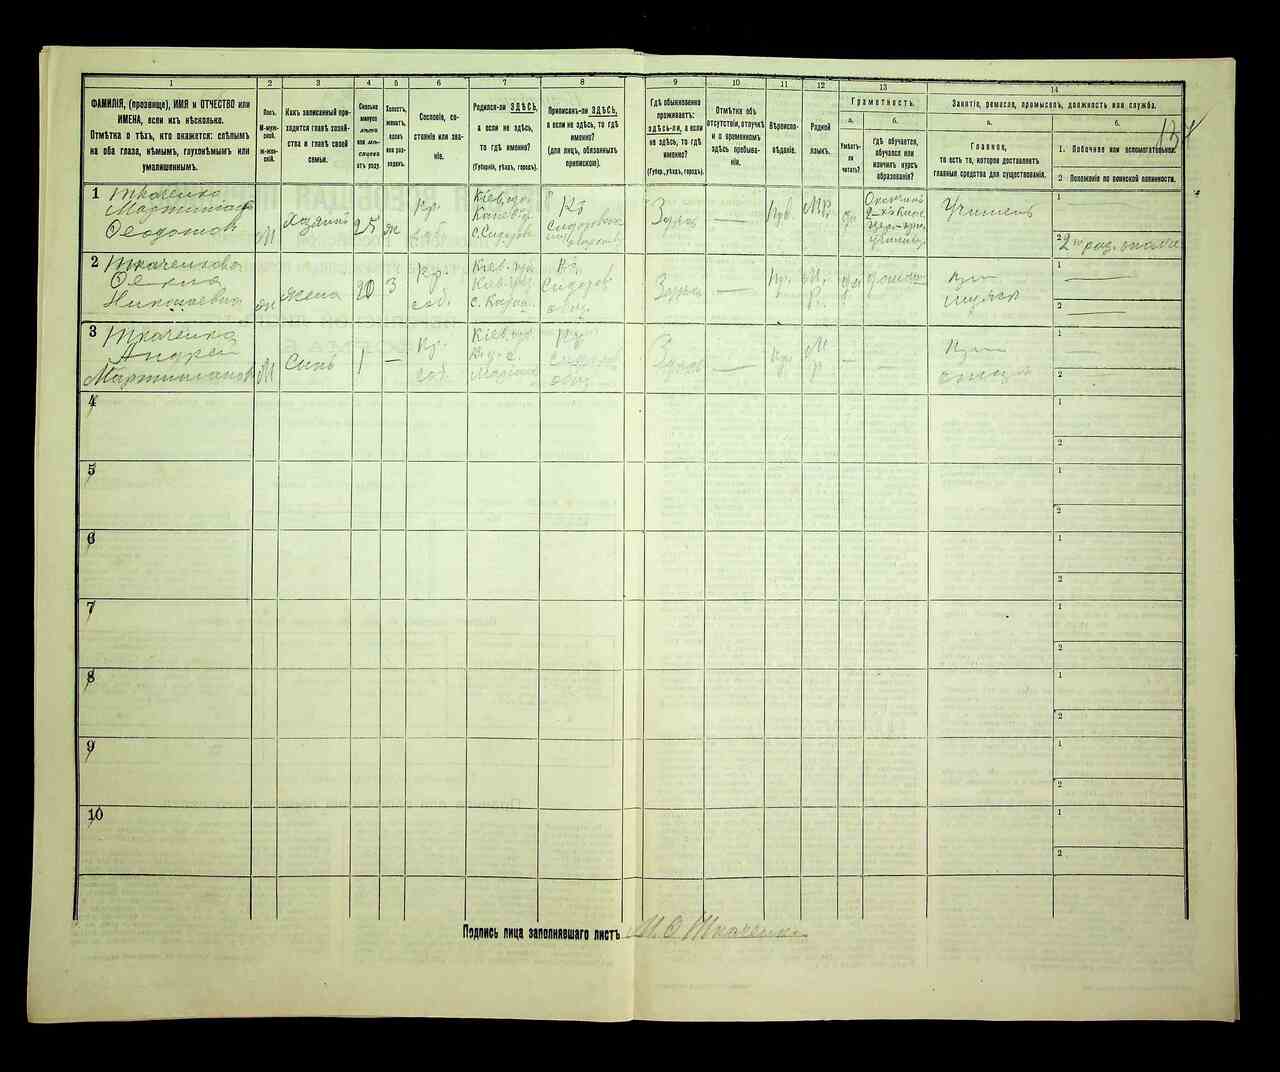 1 2 3 4 5 6 7 8 9 10 11 12 13 14
ФАМИЛІЯ, (прозвище), ИМЯ и ОТЧЕСТВО или
ИМЕНА, если ихъ нѣсколько.
Отмѣтка о тѣхъ, кто окажется: слѣпымъ
на оба глаза, нѣмымъ, глухонѣмымъ или
умалишеннымъ.
Полъ.
М-муж-
ской.
Ж-жен-
скій.
Какъ записанный при-
ходится главѣ хозяй-
ства и главѣ своей
семьи.
Сколько
минуло
лѣтъ
или мѣ-
сяцевъ
отъ роду.
Холостъ,
женатъ,
вдовъ
или раз-
веденъ.
Сословіе, со-
стояніе или зва-
ніе.
Родился-ли ЗДѢСЬ,
а если не здѣсь,
то гдѣ именно?
(Губернія, уѣздъ, городъ).
Приписанъ-ли ЗДѢСЬ,
а если не здѣсь, то гдѣ
именно?
(для лицъ, обязанныхъ
припискою).
Гдѣ обыкновенно
проживаетъ:
здѣсь-ли, а если
не здѣсь, то гдѣ
именно?
(Губер., уѣздъ, городъ).
Отмѣтка объ
отсутствіи, отлучкѣ
и о временномъ
здѣсь пребыва-
ніи.
Вѣроиспо-
вѣданіе.
Родной
языкъ.
Грамотность.
а.
Умѣетъ-
ли
читать?
б.
Гдѣ обучается,
обучался или
кончилъ курсъ
образованія?
Занятіе, ремесло, промыселъ, должность или служба.
а.
Главное,
то есть то, которое доставляетъ
главныя средства для существованія.
б.
1. Побочное или вспомогательное.
2 Положеніе по воинской повинности.
1 Ткаченко
Мартиніанъ
Феодотов
М
Хозяинъ
25
ж
Кр.
соб.
Кіев. губ.
Канев.
с. Сидоров
Къ
Сидоровск
Здѣсь
Мр.
Гр.
Окончилъ
2-хъ клас.
церк-прих.
училище
Учитель
1
2 2го раз. ополче
2 Ткаченкова
Николаевна
ж
Жена
20
З
Кр.
соб.
Кіев. губ.
Къ
Сидоров
общ.
Здѣсь
—
Пр.
М.
р
Гр
при
мужѣ
1 —
2 —
3 Ткаченко
Андрей
Мартиніанов
М
Сынъ
1
—
Кр.
соб.
Кіев. губ.
Къ
Сидоров
общ.
Здѣсь
—
Пр.
М
р
—
При
отцѣ
1 —
2 —
4
1
2
5
1
2
6
1
2
7
1
2
8
1
2
9
1
2
10
1
2
Подпись лица заполнявшаго листъ М. Ѳ Ткаченко